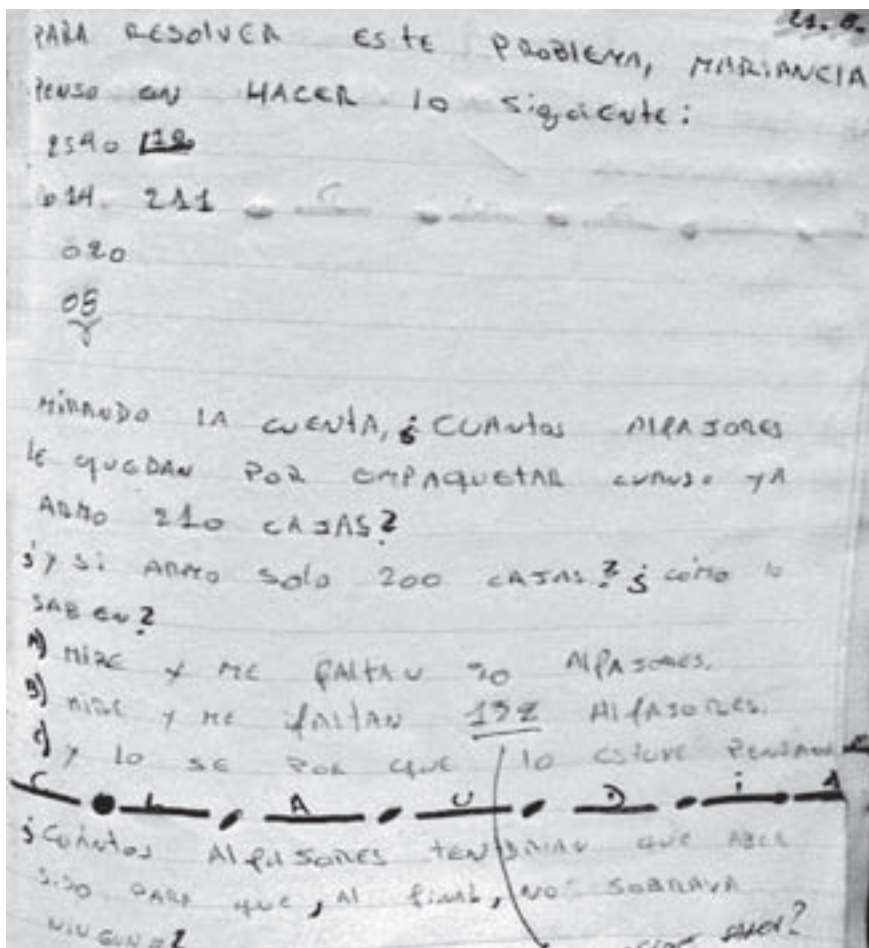 PARA RESOLVER ESTE PROBLEMA, MARIANELA
PENSO EN HACER lo siguiente:
2540 12
014 211
020
08
MIRANDO LA CUENTA, ¿CUANTOS ALFAJORES
le QUEDAN POR EMPAQUETAR CUANDO YA
ARMO 210 CAJAS?
¿Y SI ARMO solo 200 CAJAS? ¿cómo lo
SABEN?
A) MIRE Y ME FALTAN 20 ALFAJORES.
B) MIRE Y ME FALTAN 132 ALFAJORES.
C) Y LO SE POR QUE LO ESTUVE
CLAUDIA
¿CUÁNTOS ALFAJORES TENDRIAN QUE ABER
SIDO PARA QUE, AL FINAL, NO SOBRARA
NINGUNO?